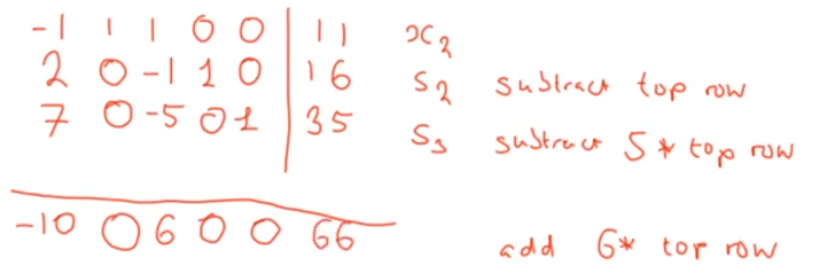 -1 1 1 0 0 | 11 x₂
2 0 -1 1 0 | 16 S₂ subtract top row
7 0 -5 0 1 | 35 S₃ subtract 5 * top row
-10 0 6 0 0 66 add 6* top row